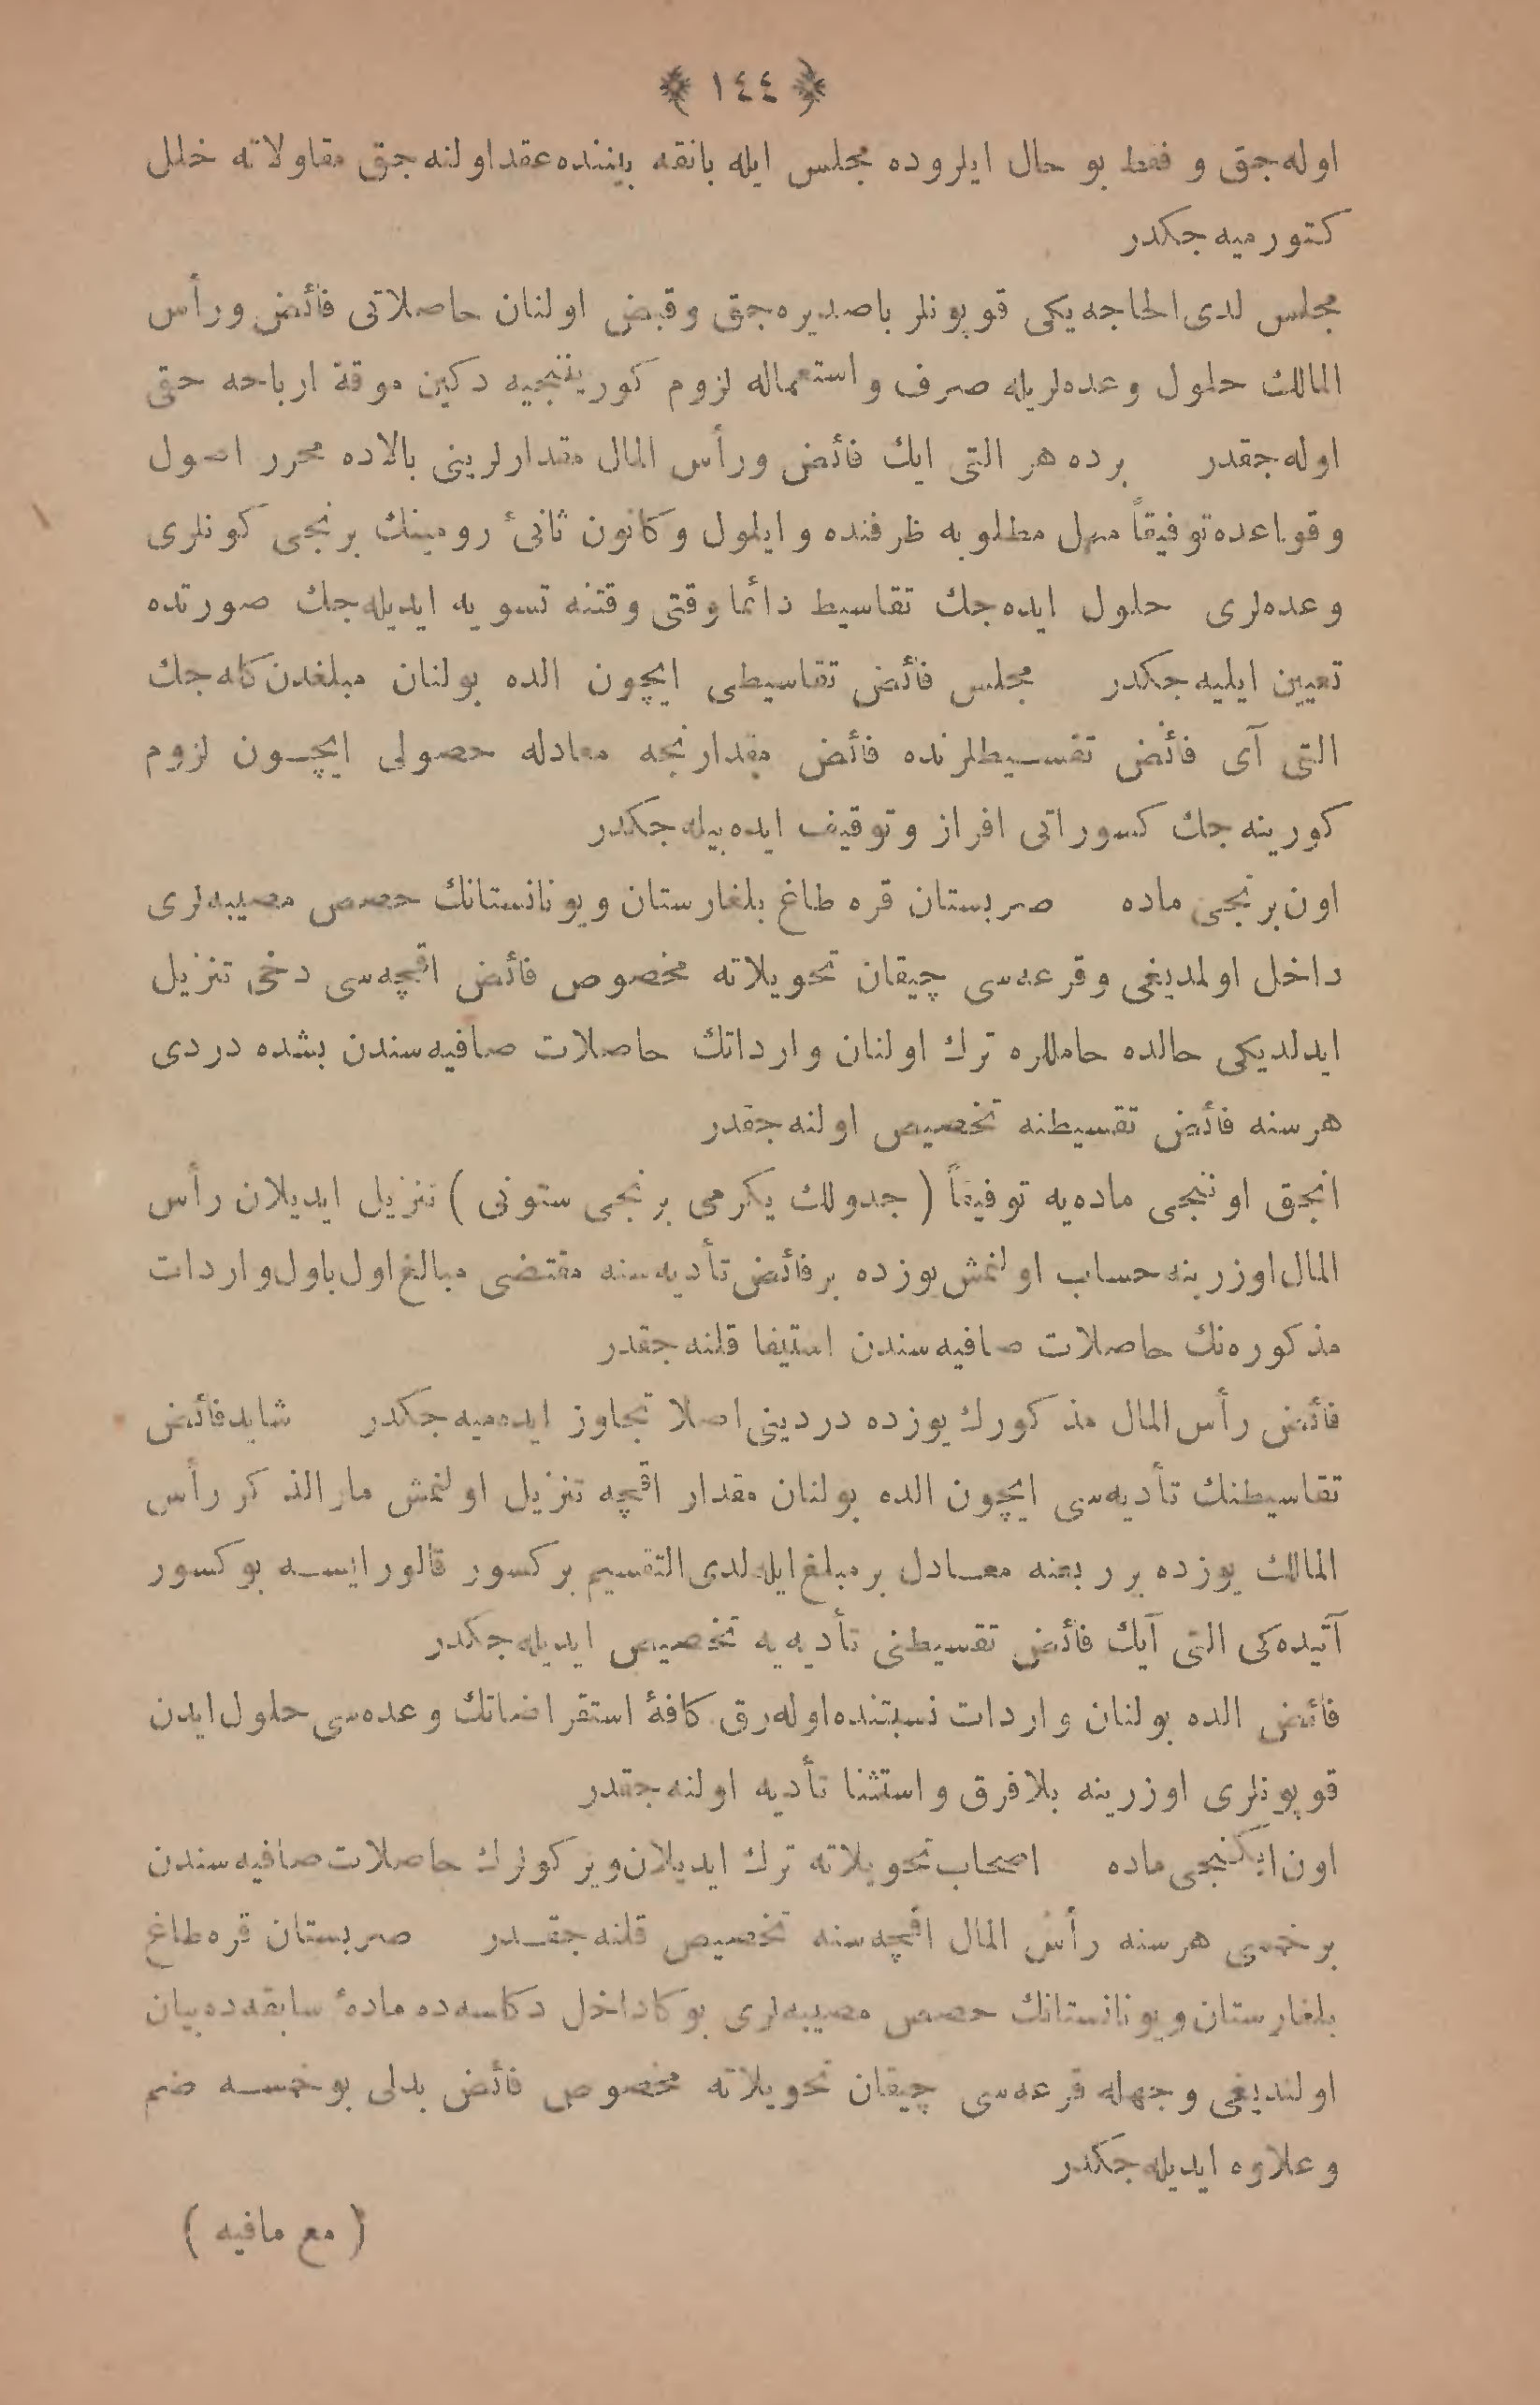 ﴿ ١٤٤ ﴾
اوله‌جق و فقط بو حال ايلروده مجلس ايله بانقه بيننده عقد اولنه‌جق مقاولاته خلل
كتورميه‌جكدر
مجلس لدى الحاجه يكى قوپونلر باصديره‌جق وقبض اولنان حاصلاتى فائض ورأس
المالك حلول وعده‌لريله صرف و استعماله لزوم كورينجيه دكين موقة ارباحه حقى
اوله‌جقدر برده هر التى ايك فائض ورأس المال مقدارلرينى بالاده محرر اصول
وقواعده توفيقاً مهل مطلوبه ظرفنده و ايلول وكانون ثانئ رومينك برنجى كونلرى
وعده‌لرى حلول ايده‌جك تقاسيط دائما وقتى وقتنه تسويه ايديله‌جك صورتده
تعيين ايليه‌جكدر مجلس فائض تقاسيطى ايچون الده بولنان مبلغدن كله‌جك
التى آى فائض تقسيطلرنده فائض مقدارنجه معادله حصولى ايچون لزوم
كورينه‌جك كسوراتى افراز و توقيف ايده‌بيله‌جكدر
اون برنجى ماده صربستان قره طاغ بلغارستان ويونانستانك حصص مصيبه‌لرى
داخل اولمديغى وقرعه‌سى چيقان تحويلاته مخصوص فائض اقچه‌سى دخى تنزيل
ايدلديكى حالده حاملره ترك اولنان وارداتك حاصلات صافيه‌سندن بشده دردى
هر سنه فائض تقسيطنه تخصيص اولنه‌جقدر
انجق اوننجى ماده‌يه توفيقاً ( جدولك يكرمى برنجى ستونى ) تنزيل ايديلان رأس
المال اوزرينه حساب اولنمش يوزده بر فائض تأديه‌سنه مقتضى مبالغ اول باول واردات
مذكوره‌نك حاصلات صافيه‌سندن استيفا قلنه‌جقدر
فائض رأس المال مذكورك يوزده دردينى اصلا تجاوز ايده‌ميه‌جكدر شايد فائض
تقاسيطنك تأديه‌سى ايچون الده بولنان مقدار اقچه تنزيل اولنمش مار الذكر رأس
المالك يوزده بر ربعنه معادل بر مبلغ ايله لدى التقسيم بر كسور قالور ايسه بو كسور
آتيده‌كى التى آيك فائض تقسيطنى تأديه‌يه تخصيص ايديله‌جكدر
فائض الده بولنان واردات نسبتنده اوله‌رق كافهٔ استقراضاتك وعده‌سى حلول ايدن
قوپونلرى اوزرينه بلا فرق و استثنا تأديه اولنه‌جقدر
اون ايكنجى ماده اصحاب تحويلاته ترك ايديلان ويركولرك حاصلات صافيه‌سندن
بر خمسى هر سنه رأس المال اقچه‌سنه تخصيص قلنه‌جقدر صربستان قره طاغ
بلغارستان ويونانستانك حصص مصيبه‌لرى بوكا داخل دكلسه‌ده مادهٔ سابقه‌ده بيان
اولنديغى وجهله قرعه‌سى چيقان تحويلاته مخصوص فائض بدلى بو خمسه ضم
وعلاوه ايديله‌جكدر
( مع مافيه )